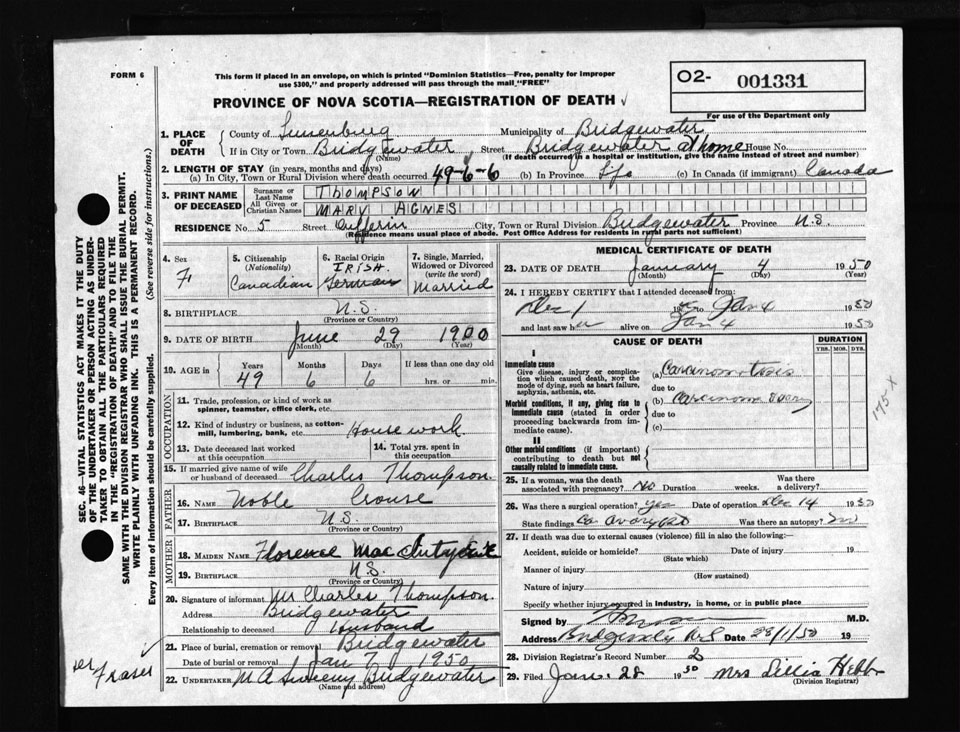 FORM 6
This form if placed in an envelope, on which is printed "Dominion Statistics—Free, penalty for improper
use $300," and properly addressed will pass through the mail "FREE"
O2- 001331
PROVINCE OF NOVA SCOTIA—REGISTRATION OF DEATH
For use of the Department only
1. PLACE OF DEATH
County of Lunenburg Municipality of Bridgewater
If in City or Town Bridgewater Street Bridgewater at home House No.
(Name) (If death occurred in a hospital or institution, give the name instead of street and number)
2. LENGTH OF STAY (in years, months and days)
(a) In City, Town or Rural Division where death occurred 49-6-6 (b) In Province Life (c) In Canada (if immigrant) Canada
3. PRINT NAME OF DECEASED
Surname or Last Name THOMPSON
All Given or Christian Names MARY AGNES
RESIDENCE No. 5 Street Dufferin City, Town or Rural Division Bridgewater Province N.S.
(Residence means usual place of abode. Post Office Address for residents in rural parts not sufficient)
4. Sex F
5. Citizenship (Nationality) Canadian
6. Racial Origin IRISH. German
7. Single, Married, Widowed or Divorced (write the word) Married
8. BIRTHPLACE N.S.
(Province or Country)
9. DATE OF BIRTH June 29 1900
(Month) (Day) (Year)
10. AGE in Years 49 Months 6 Days 6 If less than one day old hrs. or min.
OCCUPATION
11. Trade, profession, or kind of work as spinner, teamster, office clerk, etc.
12. Kind of industry or business, as cotton-mill, lumbering, bank, etc. House work
13. Date deceased last worked at this occupation
14. Total yrs. spent in this occupation
15. If married give name of wife or husband of deceased Charles Thompson.
FATHER
16. Name Noble Crouse
17. Birthplace N.S.
(Province or Country)
MOTHER
18. MAIDEN NAME Florence Mac
19. BIRTHPLACE N.S.
(Province or Country)
20. Signature of informant Mr Charles Thompson.
Address Bridgewater
Relationship to deceased Husband
21. Place of burial, cremation or removal Bridgewater
Date of burial or removal Jan 7 1950
22. UNDERTAKER M A Sweeny Bridgewater
(Name and address)
MEDICAL CERTIFICATE OF DEATH
23. DATE OF DEATH January 4 1950
(Month) (Day) (Year)
24. I HEREBY CERTIFY that I attended deceased from
Dec 1 to Jan 4 1950
and last saw her alive on Jan 4 1950
CAUSE OF DEATH
DURATION
YRS. MOS. DYS.
I
Immediate cause
Give disease, injury or complication which caused death, NOT the mode of dying, such as heart failure, asphyxia, asthenia, etc.
(a) Carcinomatosis
due to
Morbid conditions, if any, giving rise to immediate cause (stated in order proceeding backwards from immediate cause).
(b) Carcinoma
due to
(c)
II
Other morbid conditions (if important) contributing to death but not causally related to immediate cause.
175-X
25. If a woman, was the death associated with pregnancy? No Duration weeks. Was there a delivery?
26. Was there a surgical operation? Yes Date of operation Dec 14 1950
State findings Was there an autopsy? No
27. If death was due to external causes (violence) fill in also the following:—
Accident, suicide or homicide? Date of injury 19
(State which)
Manner of injury
(How sustained)
Nature of injury
Specify whether injury occurred in industry, in home, or in public place
Signed by M.D.
Address Date 28/1/50 19
28. Division Registrar's Record Number 2
29. Filed Jan. 28 1950 Mrs Lillia Hebb
(Division Registrar)
SEC. 46—VITAL STATISTICS ACT MAKES IT THE DUTY
OF THE UNDERTAKER OR PERSON ACTING AS UNDERTAKER TO OBTAIN ALL THE PARTICULARS REQUIRED
IN THE "REGISTRATION OF DEATH" AND TO FILE THE
SAME WITH THE DIVISION REGISTRAR WHO SHALL ISSUE THE BURIAL PERMIT.
WRITE PLAINLY WITH UNFADING INK. THIS IS A PERMANENT RECORD.
Every item of information should be carefully supplied. (See reverse side for instructions.)
per Fraser